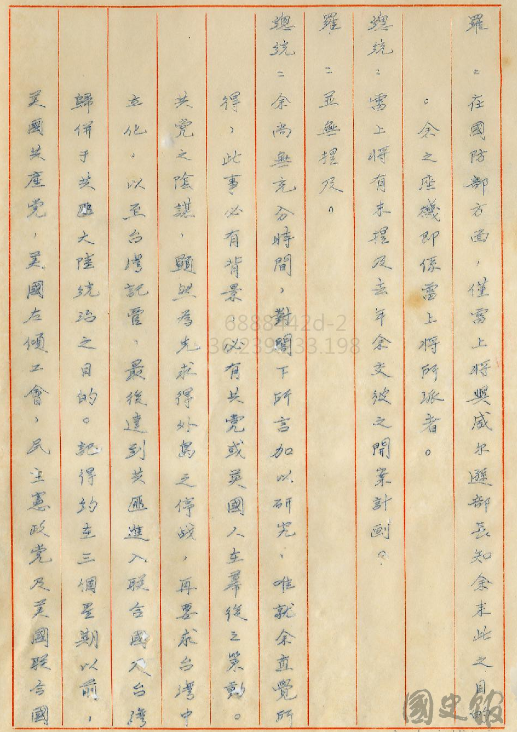 羅:在國防部方面,僅雷上將與威尔遜部長知余來此之目的
。余之座機即係雷上將所派者。
總統:雷上將有未提及去年余交彼之開案計劃?
羅:並無提及。
總統:余尚無充分時間,對閣下所言加以研究,唯就余直覺所
得,此事必有背景,必有共党或英國人在幕後之策動。
共党之陰謀,顯然為先求得外島之停战,再要求台灣中
立化,以至台灣託管,最後達到共匪進入联合國入台灣
歸併于共匪大陸統治之目的。記得約在三個星期以前,
美國共產党,美國左傾工會,民主憲政党及美國联合國
6888442d-2
36.239.133.198
國史館